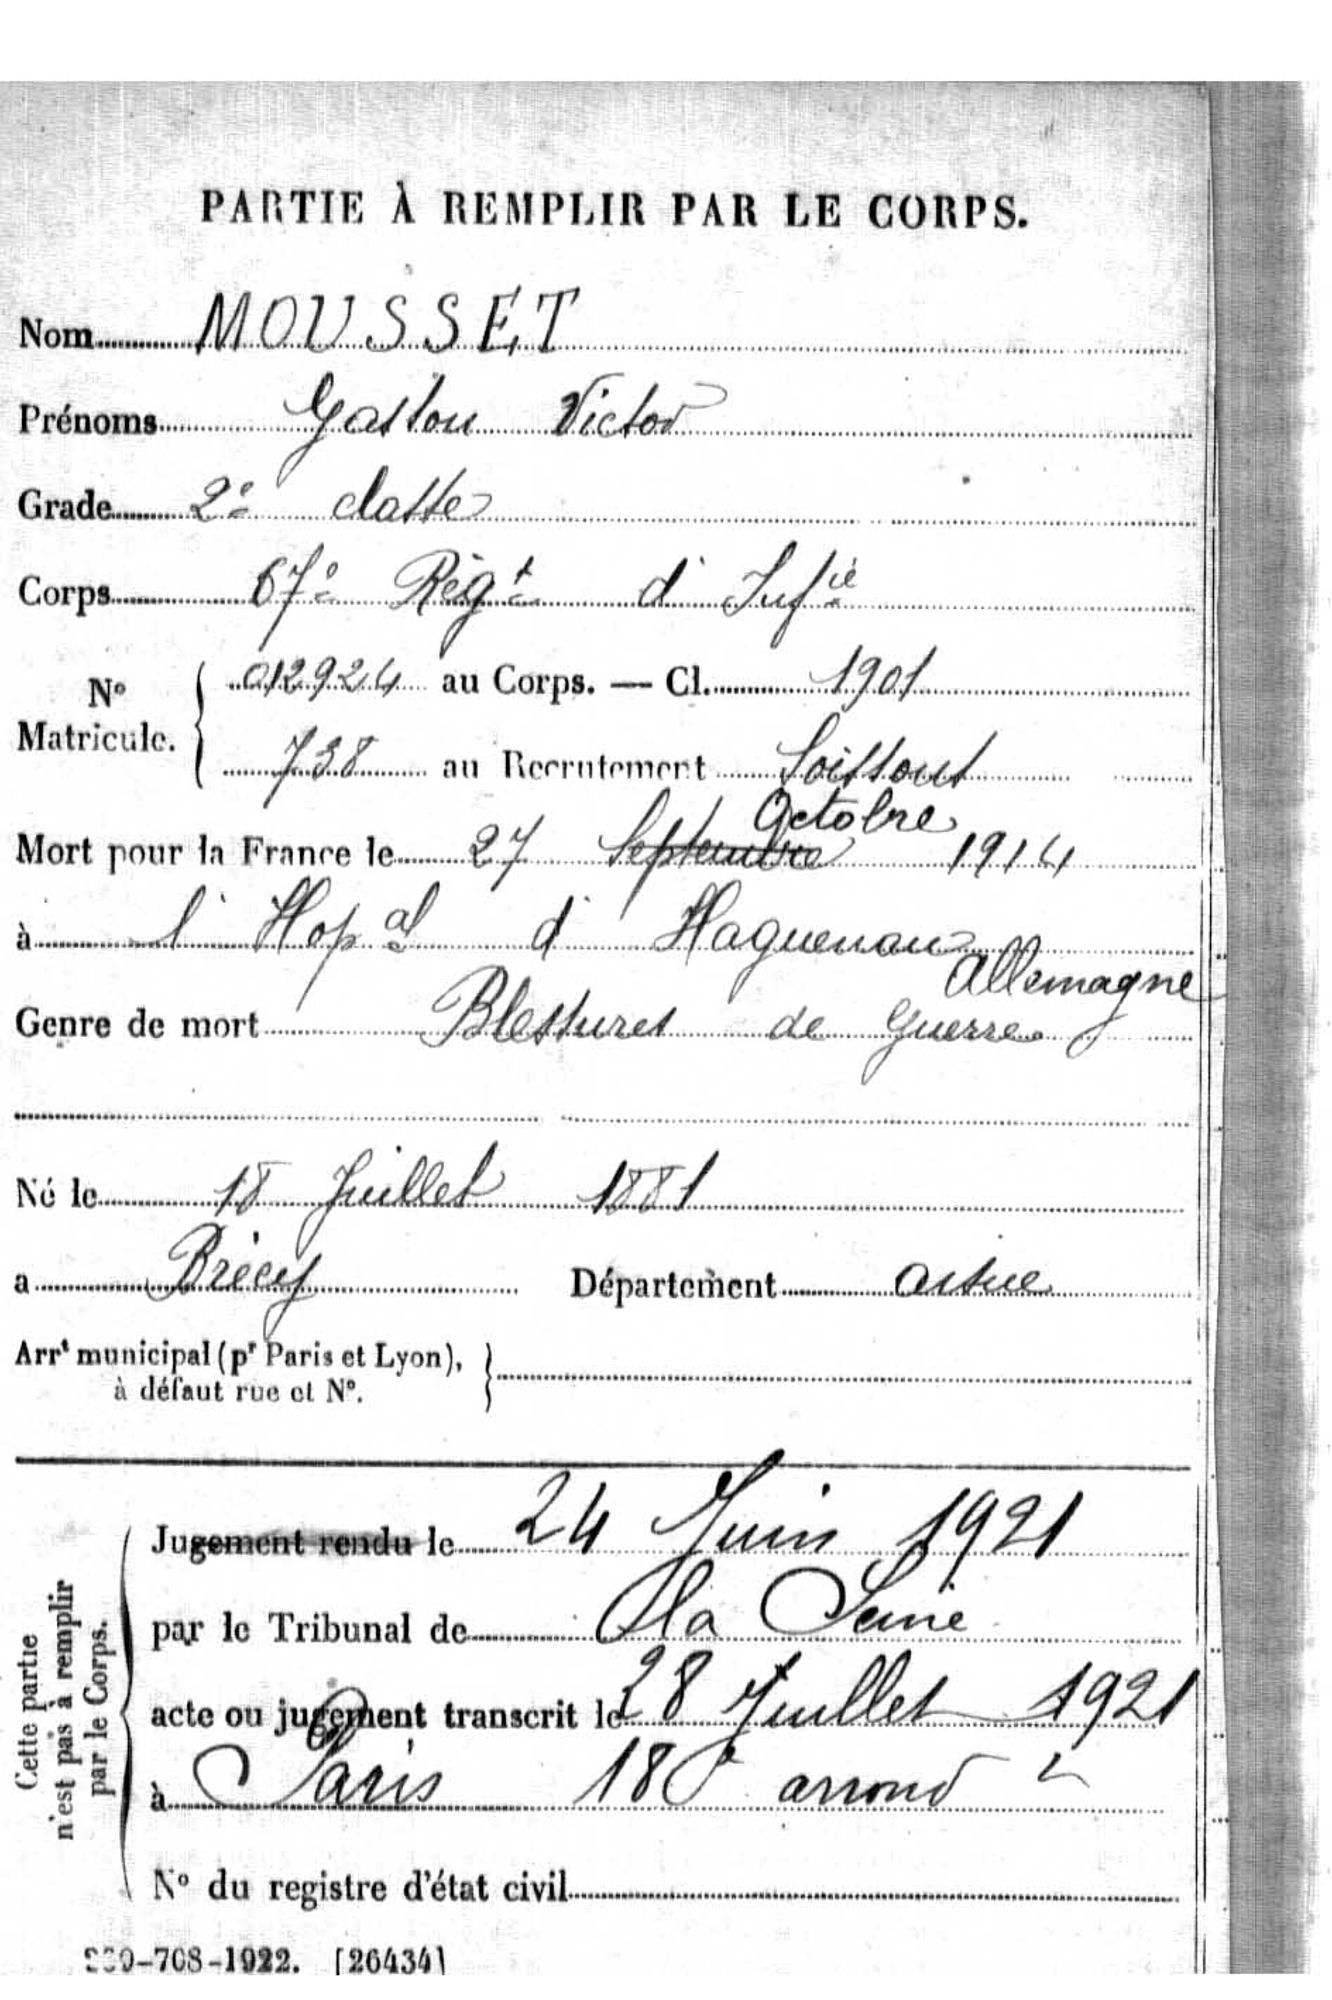 PARTIE À REMPLIR PAR LE CORPS.
Nom MOUSSET
Prénoms Gaston Victor
Grade 2e classe
Corps 67e Régt d'Infie
No Matricule. 012924 au Corps. — Cl. 1901
738 au Recrutement Soissons
Octobre
Mort pour la France le 27 Septembre 1914
à l'Hopal d'Haguenau
Allemagne
Genre de mort Blessures de Guerre
Né le 18 Juillet 1881
a Brécy Département Aisne
Arrt municipal (pr Paris et Lyon),
à défaut rue et No.
Cette partie
n'est pas à remplir
par le Corps.
Jugement rendu le 24 Juin 1921
par le Tribunal de la Seine
acte ou jugement transcrit le 28 Juillet 1921
à Paris 18e arrond
No du registre d'état civil
-708-1922. [26434]